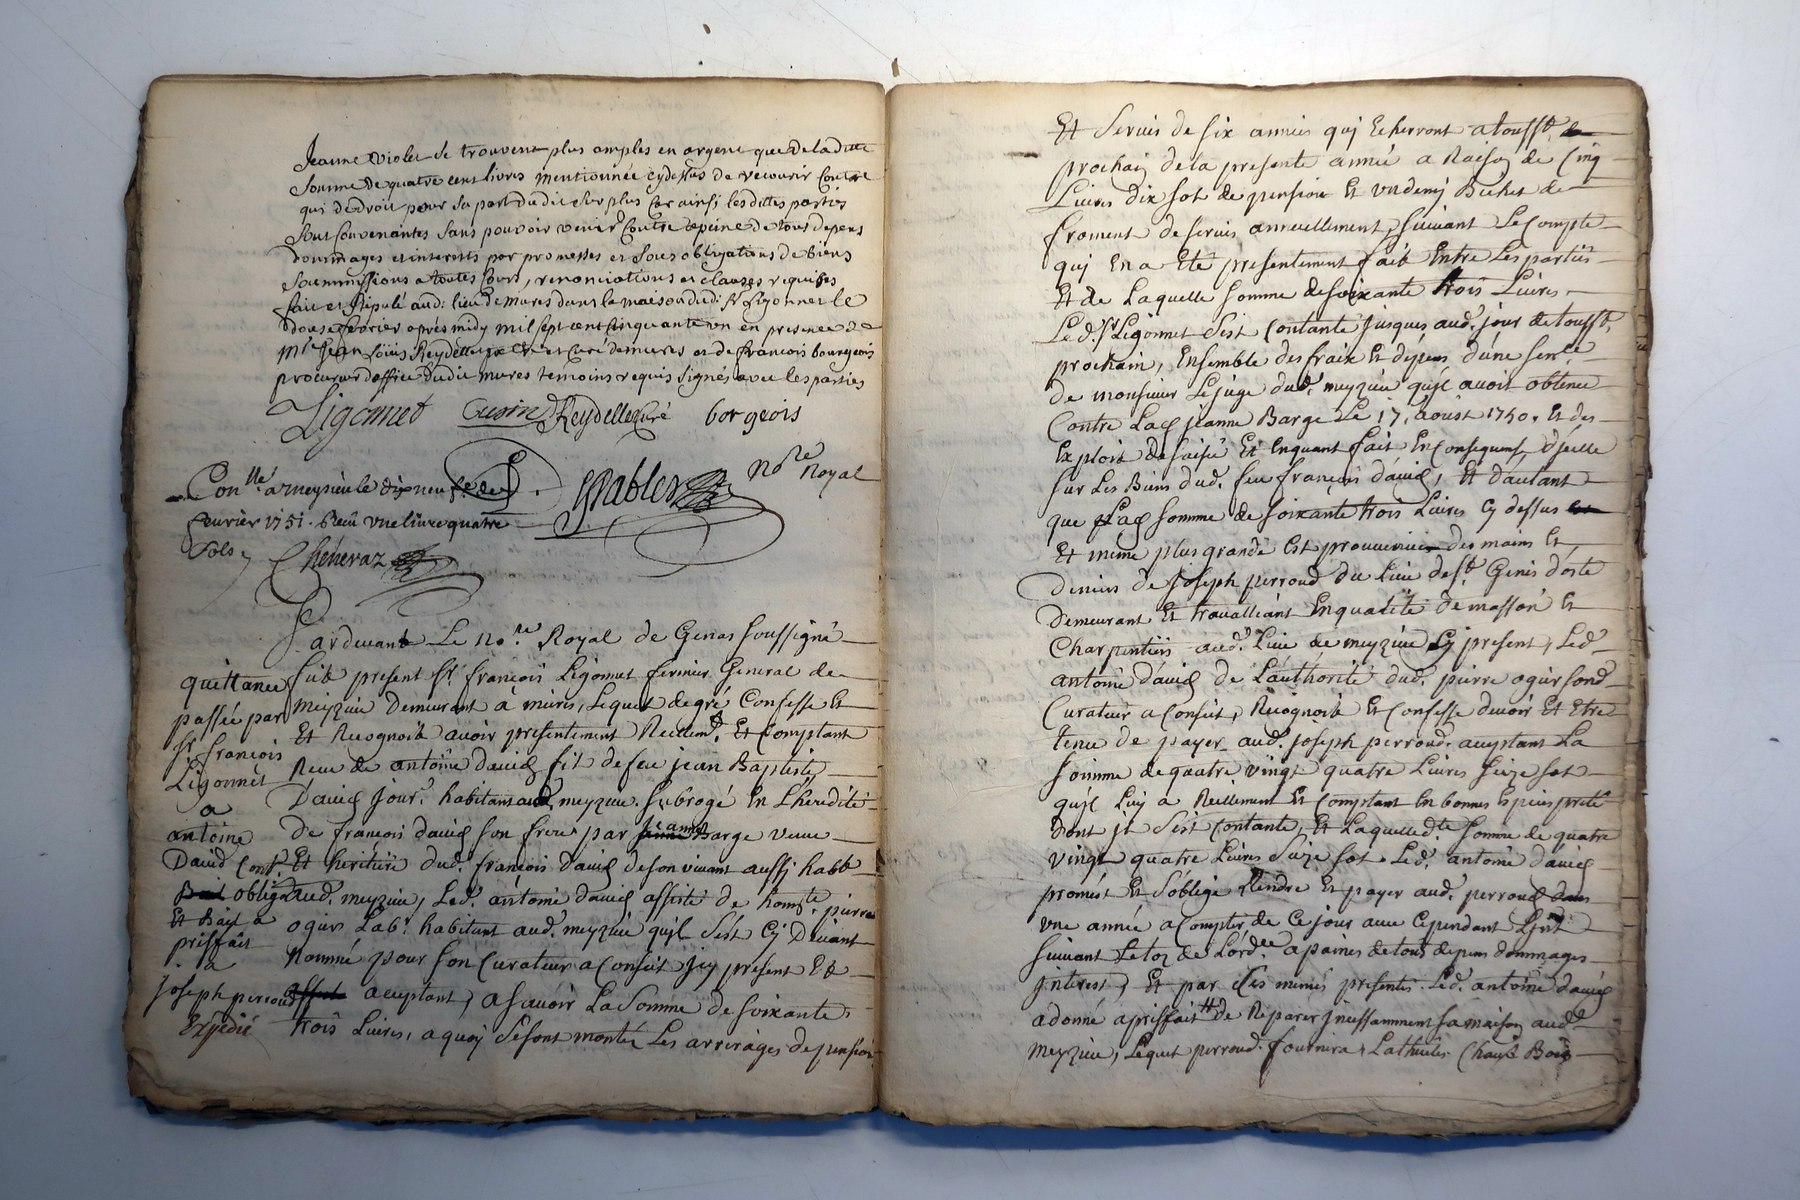 Jeanne violet se trouvent plus amples en argent que de la ditte
somme de quatre cent livres mentionnée cy dessus de recourir contre
qui de droit pour sa part du dit surplus car ainsi les dittes parties
sont convenantes sans pouvoir venir contre a peine de tous depens
dommages et interests par promesses et sous obligations de biens
soumissions a toutes cours, renonciations et clauses requises
fait et stipulé aud: lieu de mures dans la maison dudi: Sr Ligonnet le
douse fevrier aprés midy mil sept cent cinquante un en presence de
Mre Jean Loüis Reydellet curé de mures et de francois bourgeois
procureur d'office dudit mures temoins requis signés avec les parties
Ligonnet Cusin Reydellet Curé borgeois
Pablet Nore Royal
Conllé a meysieu le dix neuf
fevrier 1751. Reçu une livre quatre
sols
Cheneraz
Pardevant Le No.re Royal de Genas soussigné
fut present Sr. françois Ligonnet fermier General de
meyzieu demeurant à mures, Lequel de gré Confesse Et
Et Recognoit avoir presentement Reellemt. Et Comptant
Receu de antoine david fils de feu jean Baptiste
David Jour.r habitant aud. meyzieu. subrogé En L'heredité
De françois david son frere par jeanne Barge veuve
Et heritiere dud. françois david de son vivant aussy habt.
aud. meyzieu, Led. antoine david assisté de honnte. pierre
ogier Lab.r habitant aud. meyzieu qu'jl s'est Cy Devant
Nommé pour son Curateur a Conseil jcy present Et
acceptant, a sçavoir La Somme de soixante
trois Livres, a quoy se sont montés Les arrerages de pension
quittance
passée par
Sr. françois
Ligonnet
a
antoine
David Cont.
oblig.
Et Bail a
prisfait
a
joseph perroud
Expedié
Et servis de six années quj Echerront a toussts.
prochain de la presente année a Raison de Cinq
Livres dix sol de pension Et un demj Bichet de
froment de servis annuellement, suivant Le Compte
quj En a Eté presentement fait Entre Les parties
Et de Laquelle somme de soixante trois Livres
Led. Sr. Ligonnet s'est Contanté jusques aud. jour de toussts.
prochain, Ensemble des fraix Et dépens d'une sen.ce
de monsieur Le juge dud. meyzieu qu'jl avoit obtenu
Contre Lad. jeanne Barge Le 17. aoust 1750. Et des
Exploit de saisie Et Enquant fait En Consequence d'jcelle
sur Les Biens dud. feu françois david, Et d'autant
que Lad. somme de soixante trois Livres Cy dessus
Et même plus grande Est prouvenue des mains Et
Deniers de Joseph perroud du Lieu de St. Genis d'oste
Demeurant Et travailliant En qualité de masson Et
Charpentier aud. Lieu de meyzieu Cy present, Led.
antoine david de L'authorité dud. pierre ogier sond.
Curateur a Conseil, Recognoit Et Confesse devoir Et Etre
tenu de payer aud. joseph perroud. acceptant La
somme de quatre vingt quatre Livres seize sol
qu'jl Luy a Reellement Et Comptant En bonnes Especes preté
Dont jl s'est Contanté, Et Laquelled.te somme de quatre
vingt quatre Livres seize sol. Led. antoine david
promest Et s'oblige Rendre Et payer aud. perroud dans
une année a Compter de Ce jour avec Cependant L'jnt.
suivant Le toz de L'ord.ce a peines de tous depens dommages
jnterest, Et par Ces mêmes presentes Led. antoine david
a donné a prisfait # de Reparer jncessamment sa maison aud.
Meyzieu, Lequel perroud. fournira, La thuiles. Chaux Bois